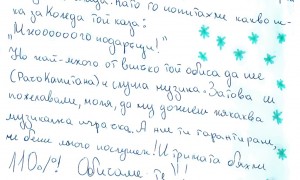 Като го попитахме какво ис-
ка за Коледа той каза:
"Мноооооого подаръци!"
Но най-много от всичко той обича да пее
и слуша музика. Затова ти
пожелаваме, моля, да му донесеш някаква
музикална играчка. А ние ти гарантираме,
че беше много послушен! И тримата бяхме
110%!
Обичаме те!!!